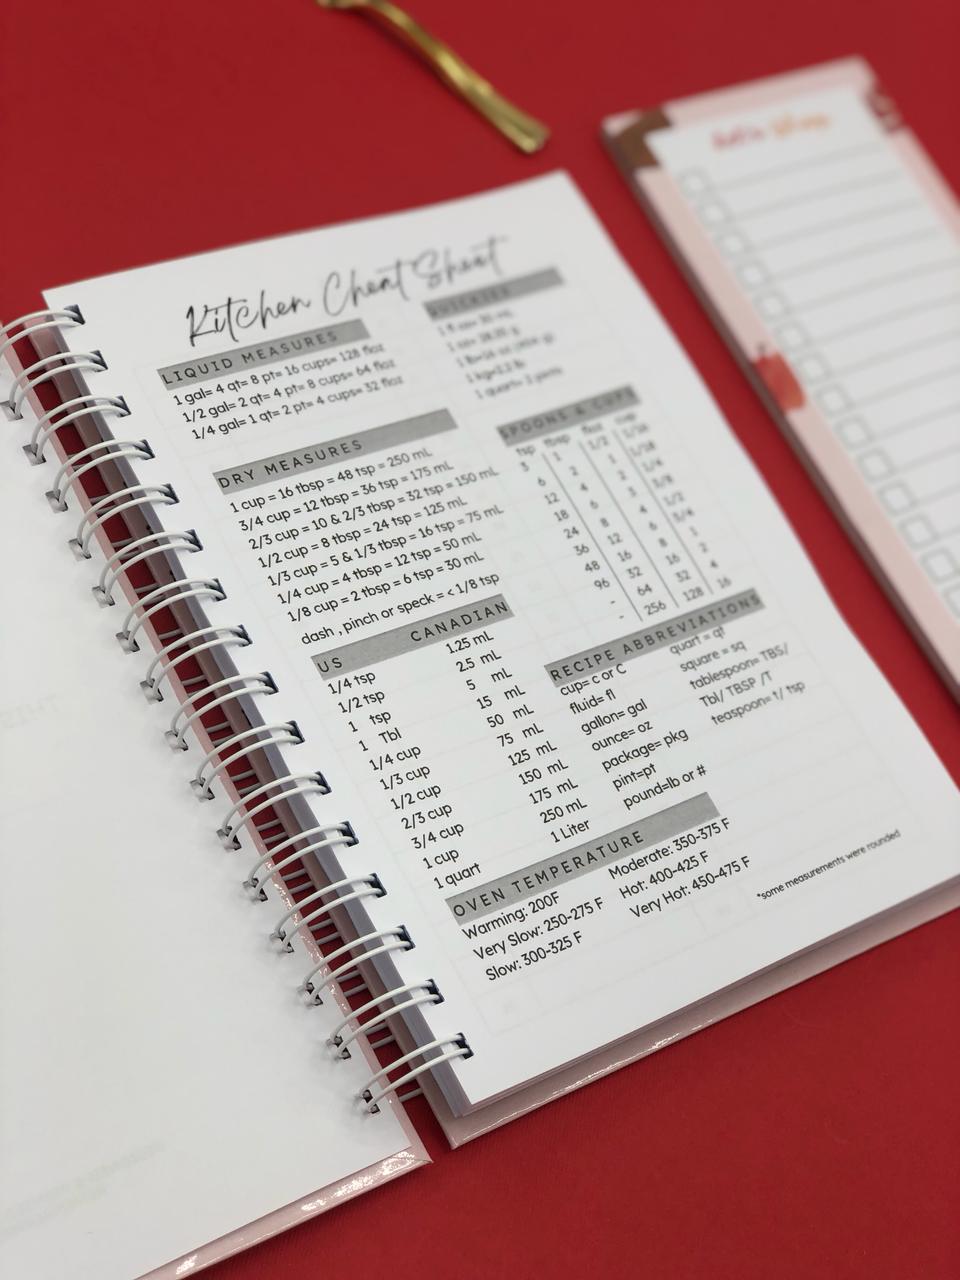 Kitchen Cheat Sheet
LIQUID MEASURES
1 gal= 4 qt= 8 pt= 16 cups= 128 floz
1/2 gal= 2 qt= 4 pt= 8 cups= 64 floz
1/4 gal= 1 qt= 2 pt= 4 cups= 32 floz
DRY MEASURES
1 cup = 16 tbsp = 48 tsp = 250 mL
3/4 cup = 12 tbsp = 36 tsp = 175 mL
2/3 cup = 10 & 2/3 tbsp = 32 tsp = 150 mL
1/2 cup = 8 tbsp = 24 tsp = 125 mL
1/3 cup = 5 & 1/3 tbsp = 16 tsp = 75 mL
1/4 cup = 4 tbsp = 12 tsp = 50 mL
1/8 cup = 2 tbsp = 6 tsp = 30 mL
dash , pinch or speck = < 1/8 tsp
US CANADIAN
1/4 tsp 1.25 mL
1/2 tsp 2.5 mL
1 tsp 5 mL
1 Tbl 15 mL
1/4 cup 50 mL
1/3 cup 75 mL
1/2 cup 125 mL
2/3 cup 150 mL
3/4 cup 175 mL
1 cup 250 mL
1 quart 1 Liter
QUICKIES
1 kg=2.2 lb
1 quart= 2 pints
SPOONS & CUPS
tsp tbsp floz cup
3 1 1/2 1/16
6 2 1
12 4 2 1/4
18 6 3 3/8
24 8 4 1/2
36 12 6 3/4
48 16 8 1
96 32 16 2
- 64 32 4
- 256 128 16
RECIPE ABBREVIATIONS
cup= c or C
fluid= fl
gallon= gal
ounce= oz
package= pkg
pint=pt
pound=lb or #
quart = qt
square = sq
tablespoon= TBS/
Tbl/ TBSP /T
teaspoon= t/ tsp
OVEN TEMPERATURE
Warming: 200F
Very Slow: 250-275 F
Slow: 300-325 F
Moderate: 350-375 F
Hot: 400-425 F
Very Hot: 450-475 F
*some measurements were rounded